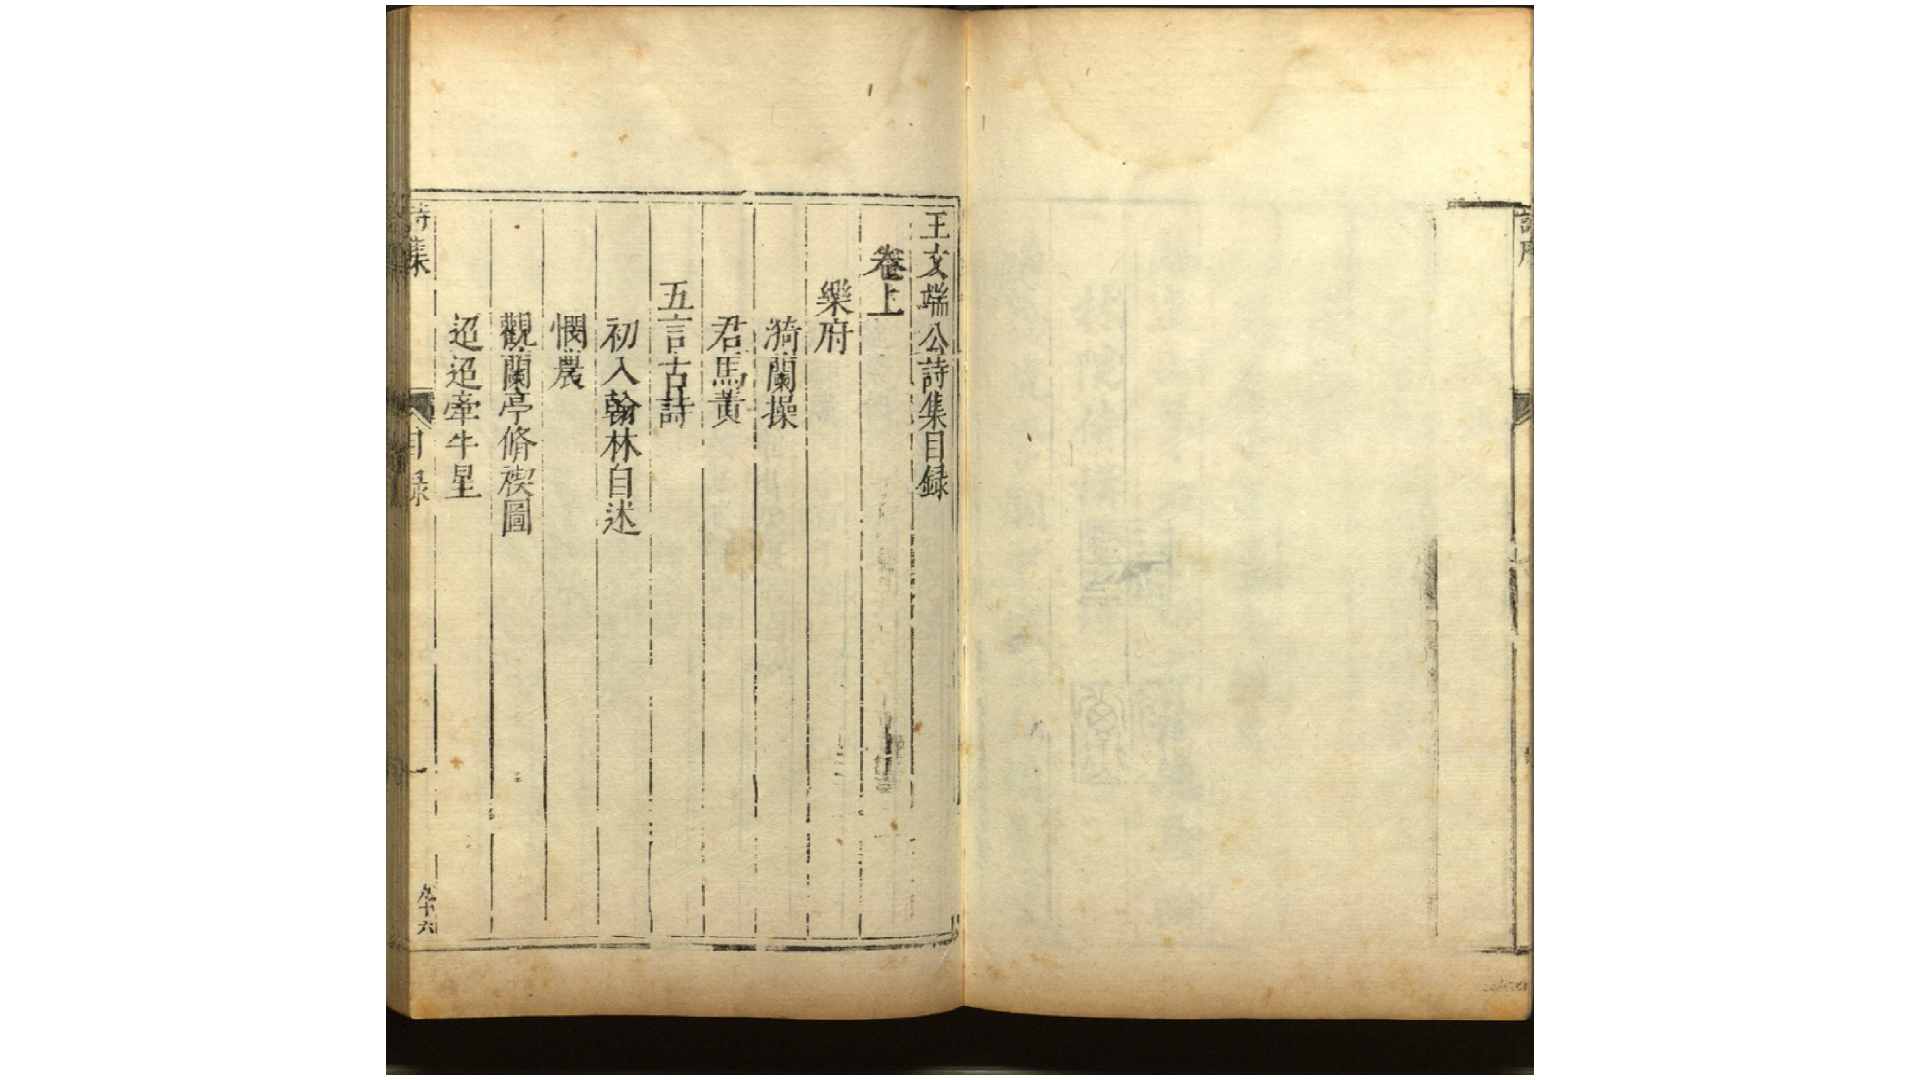 王文端公詩集目録
卷上
樂府
漪蘭操
君馬黄
五言古詩
初入翰林自述
憫農
觀蘭亭脩禊圖
迢迢牽牛星
詩集
目録
一